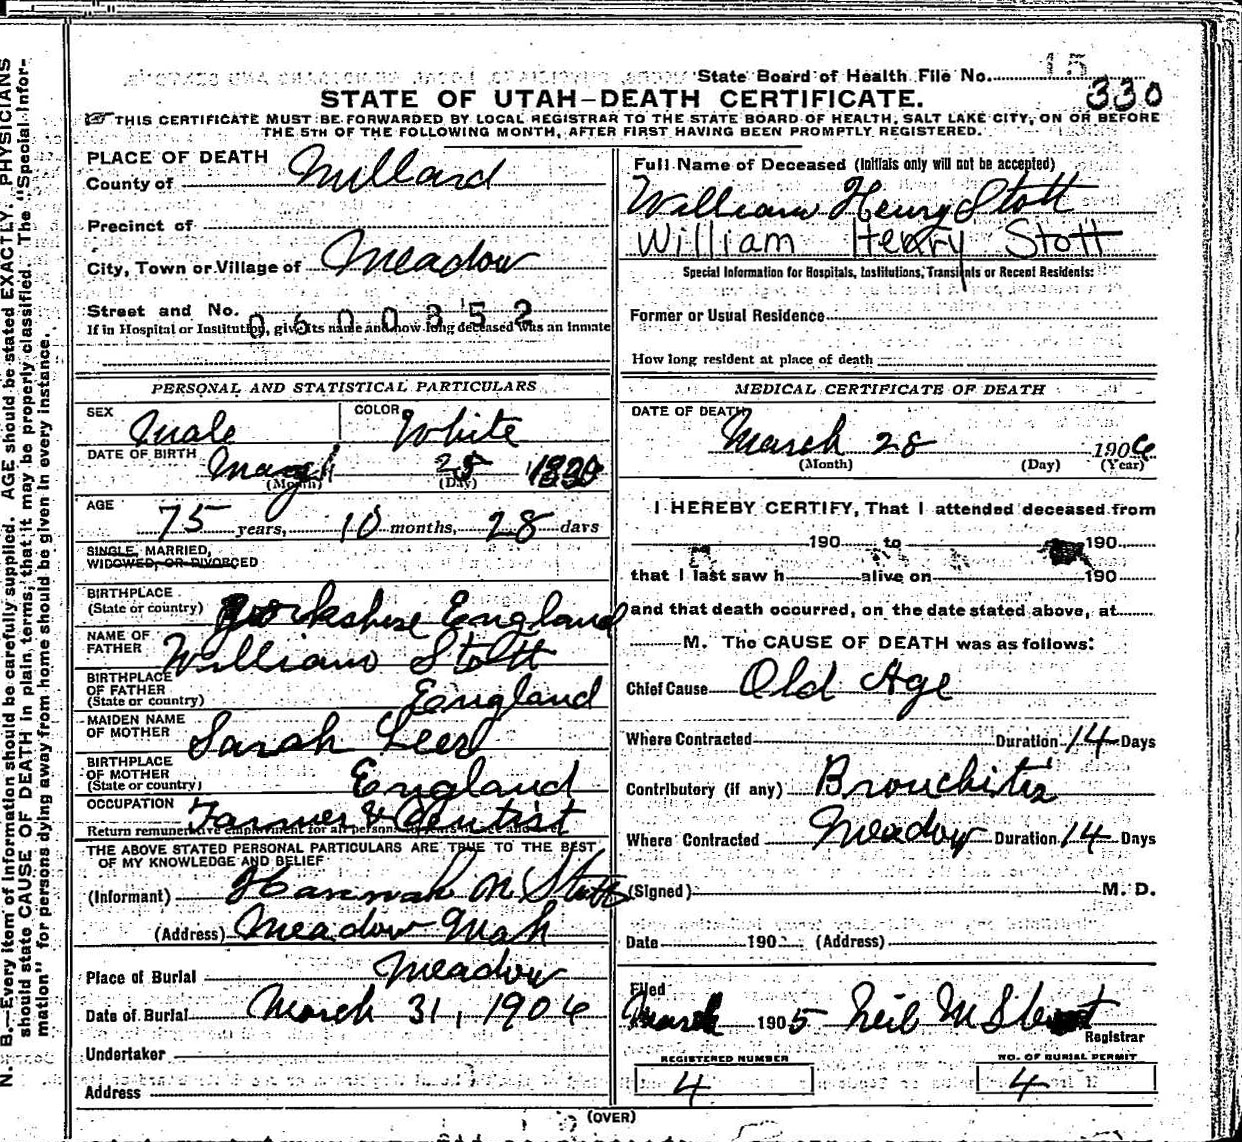 State Board of Health File No. 15
330
STATE OF UTAH-DEATH CERTIFICATE.
THIS CERTIFICATE MUST BE FORWARDED BY LOCAL REGISTRAR TO THE STATE BOARD OF HEALTH, SALT LAKE CITY, ON OR BEFORE
THE 5TH OF THE FOLLOWING MONTH, AFTER FIRST HAVING BEEN PROMPTLY REGISTERED.
PLACE OF DEATH
County of Millard
Precinct of
City, Town or Village of Meadow
Street and No.
0600352
If in Hospital or Institution, give its name and how long deceased was an inmate
PERSONAL AND STATISTICAL PARTICULARS
SEX Male
COLOR White
DATE OF BIRTH
(Month) (Day)
AGE 75 years, 10 months, 28 days
SINGLE, MARRIED,
WIDOWED, OR DIVORCED
BIRTHPLACE
(State or country) Yorkshire England
NAME OF
FATHER William Stott
BIRTHPLACE
OF FATHER
(State or country) England
MAIDEN NAME
OF MOTHER Sarah Lees
BIRTHPLACE
OF MOTHER
(State or country) England
OCCUPATION Farmer & Dentist
THE ABOVE STATED PERSONAL PARTICULARS ARE TRUE TO THE BEST
OF MY KNOWLEDGE AND BELIEF
(Informant) Hannah M Stott
(Address) Meadow Utah
Place of Burial Meadow
Date of Burial March 31, 1906
Undertaker
Address
Full Name of Deceased (Initials only will not be accepted)
William Henry Stott
William Henry Stott
Special Information for Hospitals, Institutions, Transients or Recent Residents:
Former or Usual Residence
How long resident at place of death
MEDICAL CERTIFICATE OF DEATH
DATE OF DEATH
March 28 1906
(Month) (Day) (Year)
I HEREBY CERTIFY, That I attended deceased from
190 to 190
that I last saw h alive on 190
and that death occurred, on the date stated above, at
M. The CAUSE OF DEATH was as follows:
Chief Cause Old Age
Where Contracted Duration 14 Days
Contributory (if any) Bronchitis
Where Contracted Meadow Duration 14 Days
(Signed) M. D.
Date 190 (Address)
Filed
March 1905 Neil M Stewart
Registrar
REGISTERED NUMBER
4
NO. OF BURIAL PERMIT
4
(OVER)
N. B.—Every item of information should be carefully supplied. AGE should be stated EXACTLY. PHYSICIANS
should state CAUSE OF DEATH in plain terms; that it may be properly classified. The "Special Infor-
mation" for persons dying away from home should be given in every instance.